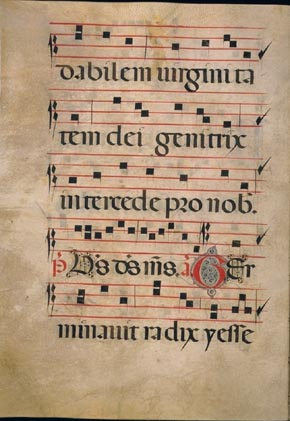 dabilem uirgini ta
tem dei genitrix
intercede pro nob.
ps. Dns dns ns. a Ger
minauit radix yesse